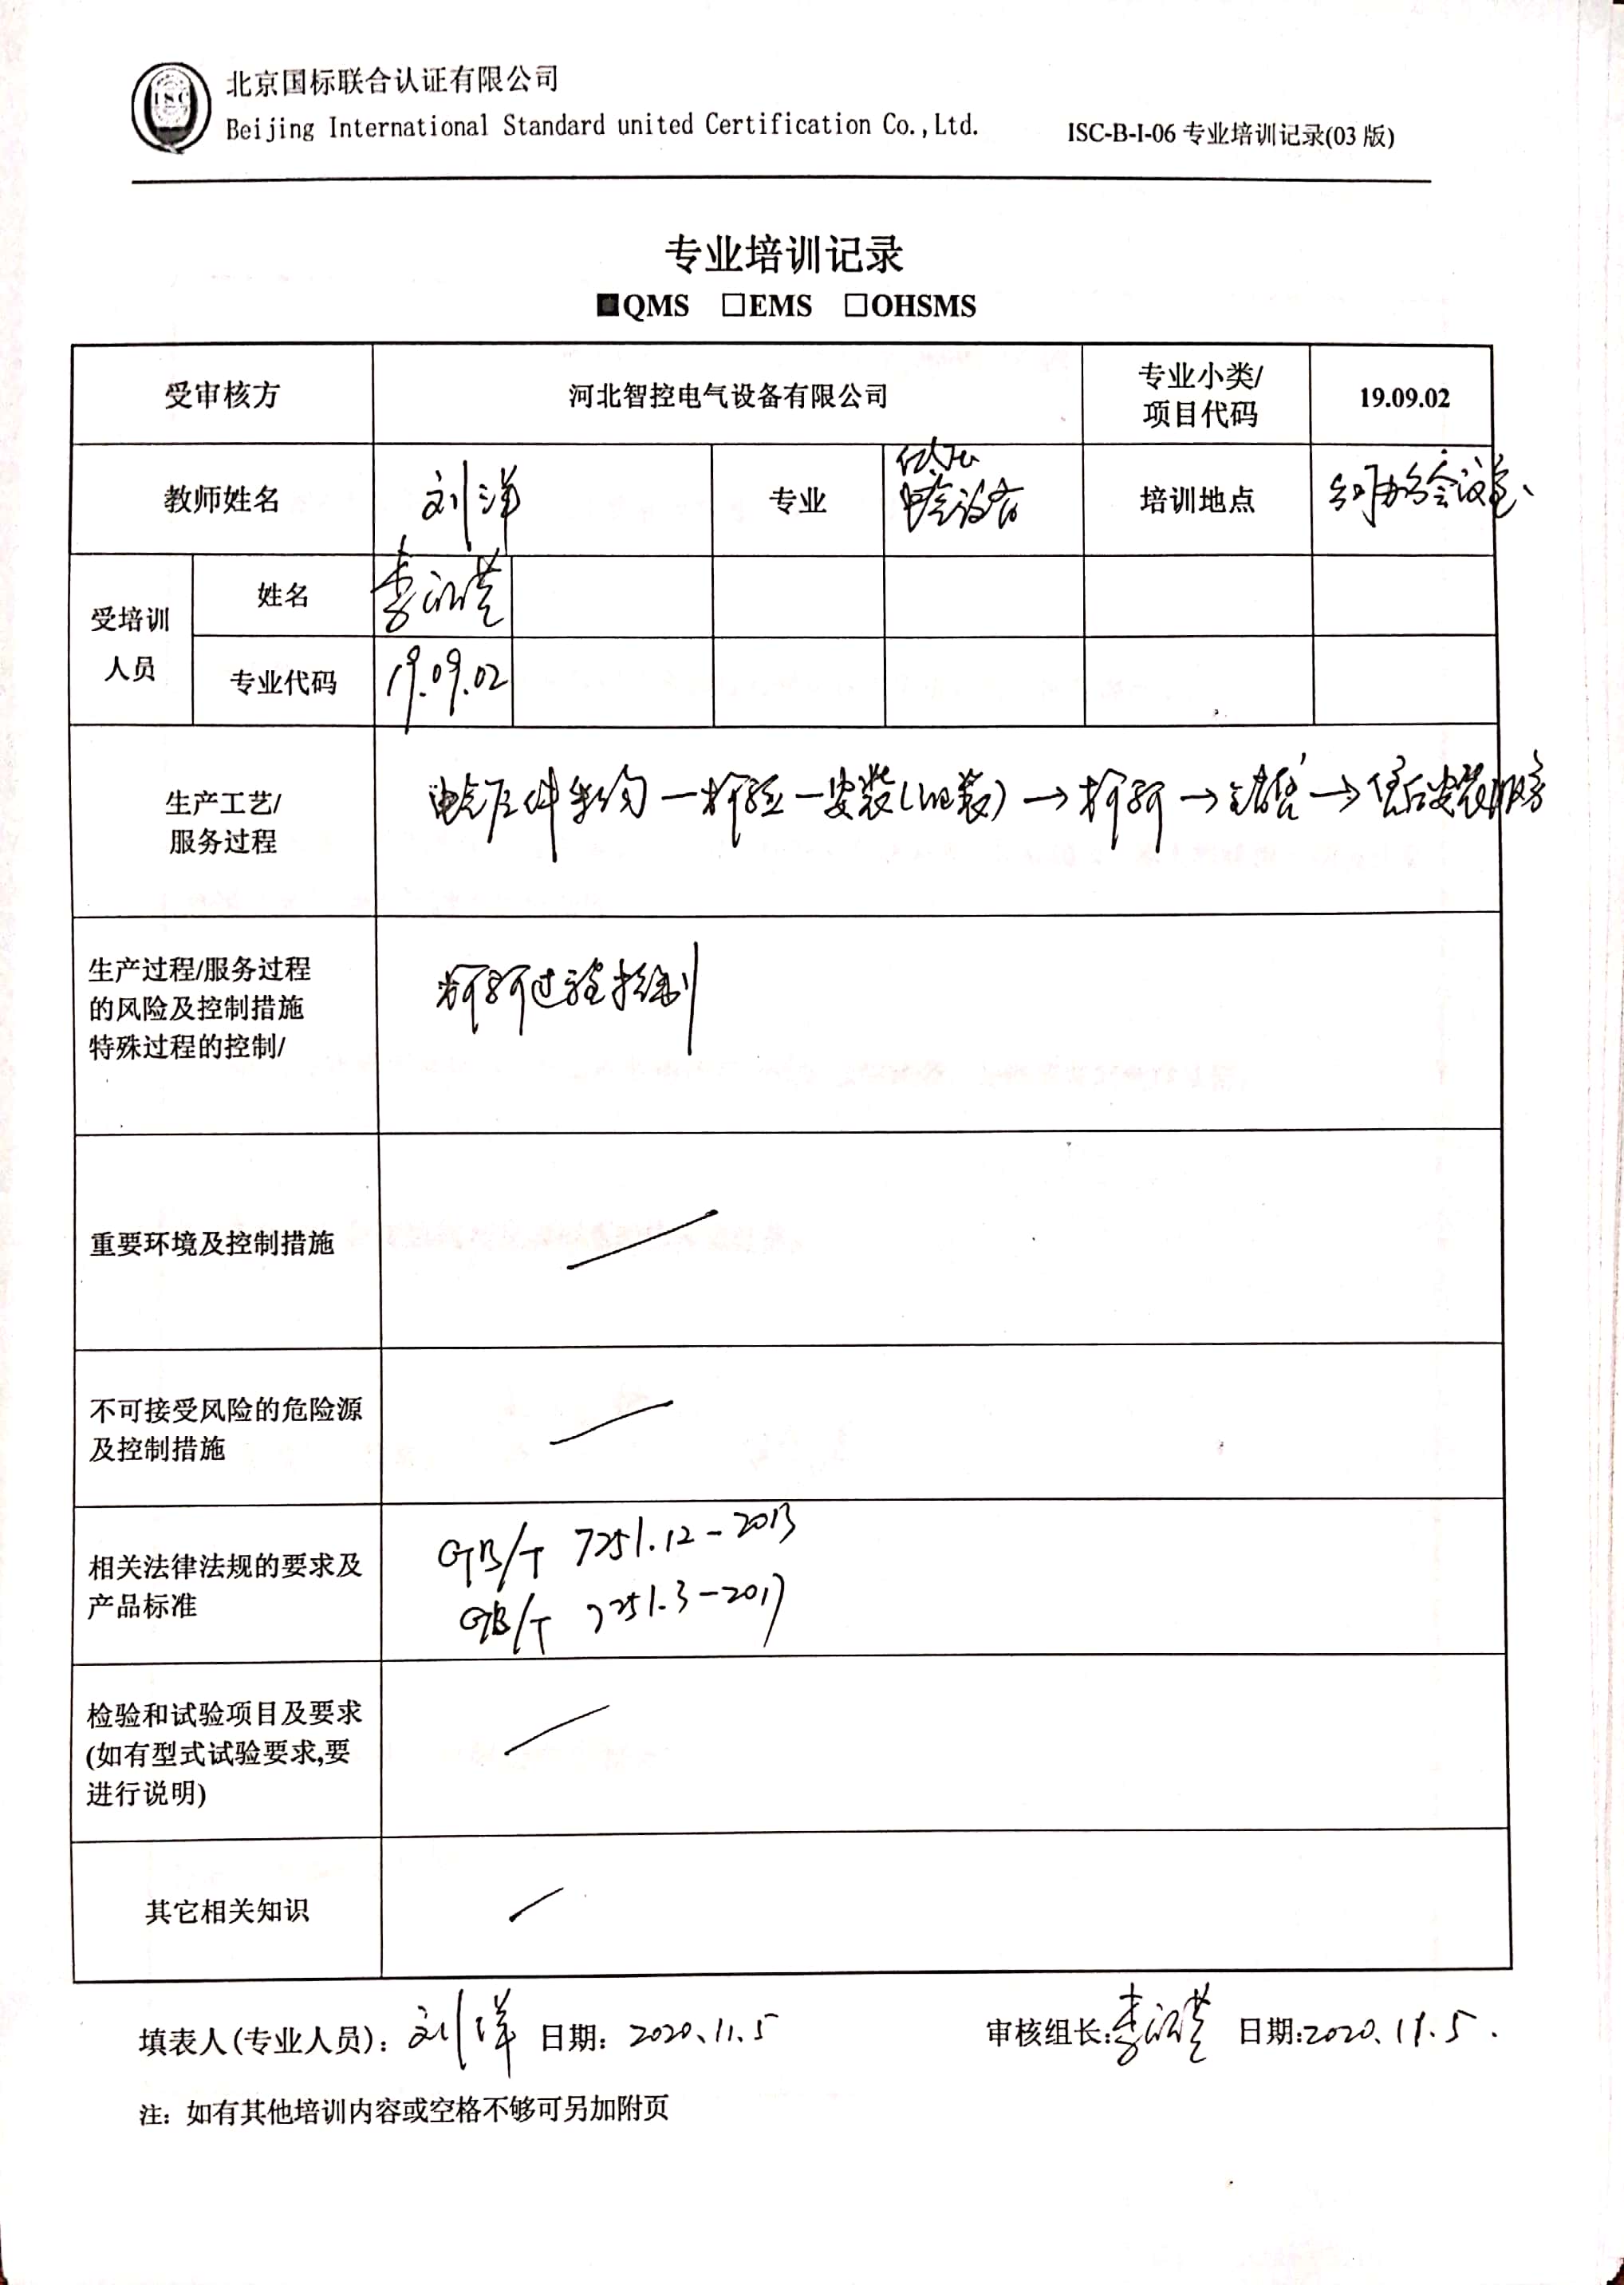 ISC
北京国标联合认证有限公司
Beijing International Standard united Certification Co.,Ltd.
ISC-B-I-06 专业培训记录(03 版)
专业培训记录
■QMS □EMS □OHSMS
受审核方 河北智控电气设备有限公司 专业小类/项目代码 19.09.02
教师姓名 刘洋 专业 低压电气设备 培训地点 公司办公会议室
受培训人员 姓名 李
专业代码 19.09.02
生产工艺/
服务过程
电气元件采购—检验—安装(组装)→检验→销售→售后安装服务
生产过程/服务过程
的风险及控制措施
特殊过程的控制/
过程控制
重要环境及控制措施
不可接受风险的危险源
及控制措施
相关法律法规的要求及
产品标准
GB/T 7251.12-2013
GB/T 7251.3-2017
检验和试验项目及要求
(如有型式试验要求,要
进行说明)
其它相关知识
填表人(专业人员): 刘洋 日期: 2020、11、5 审核组长: 李 日期:2020、11.5.
注: 如有其他培训内容或空格不够可另加附页